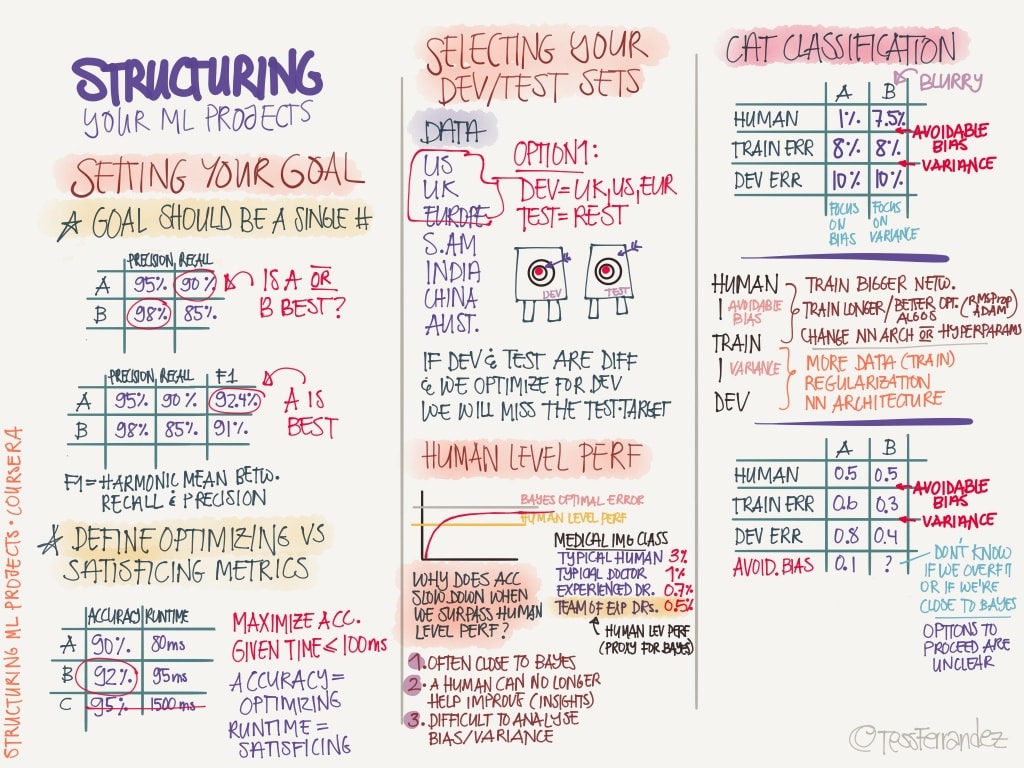 STRUCTURING
YOUR ML PROJECTS
SETTING YOUR GOAL
GOAL SHOULD BE A SINGLE #
PRECISION, RECALL
A 95% 90%
B 98% 85%
IS A OR
B BEST?
PRECISION, RECALL F1
A 95% 90% 92.4%
B 98% 85% 91%
A IS
BEST
F1 = HARMONIC MEAN BETW.
RECALL & PRECISION
DEFINE OPTIMIZING VS
SATISFICING METRICS
ACCURACY RUNTIME
A 90% 80ms
B 92% 95ms
C 95% 1500ms
MAXIMIZE ACC.
GIVEN TIME ≤ 100ms
ACCURACY =
OPTIMIZING
RUNTIME =
SATISFICING
STRUCTURING ML PROJECTS • COURSERA
SELECTING YOUR
DEV/TEST SETS
DATA
US
UK
EUROPE
S.AM
INDIA
CHINA
AUST.
OPTION1:
DEV = UK, US, EUR
TEST = REST
DEV
TEST
IF DEV & TEST ARE DIFF
& WE OPTIMIZE FOR DEV
WE WILL MISS THE TEST•TARGET
HUMAN LEVEL PERF
BAYES OPTIMAL ERROR
HUMAN LEVEL PERF
MEDICAL IMG CLASS
TYPICAL HUMAN 3%
TYPICAL DOCTOR 1%
EXPERIENCED DR. 0.7%
TEAM OF EXP DRS. 0.5%
HUMAN LEV PERF
(PROXY FOR BAYES)
WHY DOES ACC
SLOW DOWN WHEN
WE SURPASS HUMAN
LEVEL PERF?
1. OFTEN CLOSE TO BAYES
2. A HUMAN CAN NO LONGER
HELP IMPROVE (INSIGHTS)
3. DIFFICULT TO ANALYSE
BIAS/VARIANCE
CAT CLASSIFICATION
BLURRY
A B
HUMAN 1% 7.5%
TRAIN ERR 8% 8%
DEV ERR 10% 10%
AVOIDABLE
BIAS
VARIANCE
FOCUS
ON
BIAS
FOCUS
ON
VARIANCE
HUMAN
AVOIDABLE
BIAS
TRAIN
VARIANCE
DEV
TRAIN BIGGER NETW.
TRAIN LONGER/BETTER OPT. ALGOS (RMSPROP ADAM)
CHANGE NN ARCH OR HYPERPARAMS
MORE DATA (TRAIN)
REGULARIZATION
NN ARCHITECTURE
A B
HUMAN 0.5 0.5
TRAIN ERR 0.6 0.3
DEV ERR 0.8 0.4
AVOID. BIAS 0.1 ?
AVOIDABLE
BIAS
VARIANCE
DON'T KNOW
IF WE OVERFIT
OR IF WE'RE
CLOSE TO BAYES
OPTIONS TO
PROCEED ARE
UNCLEAR
©TessFerrandez